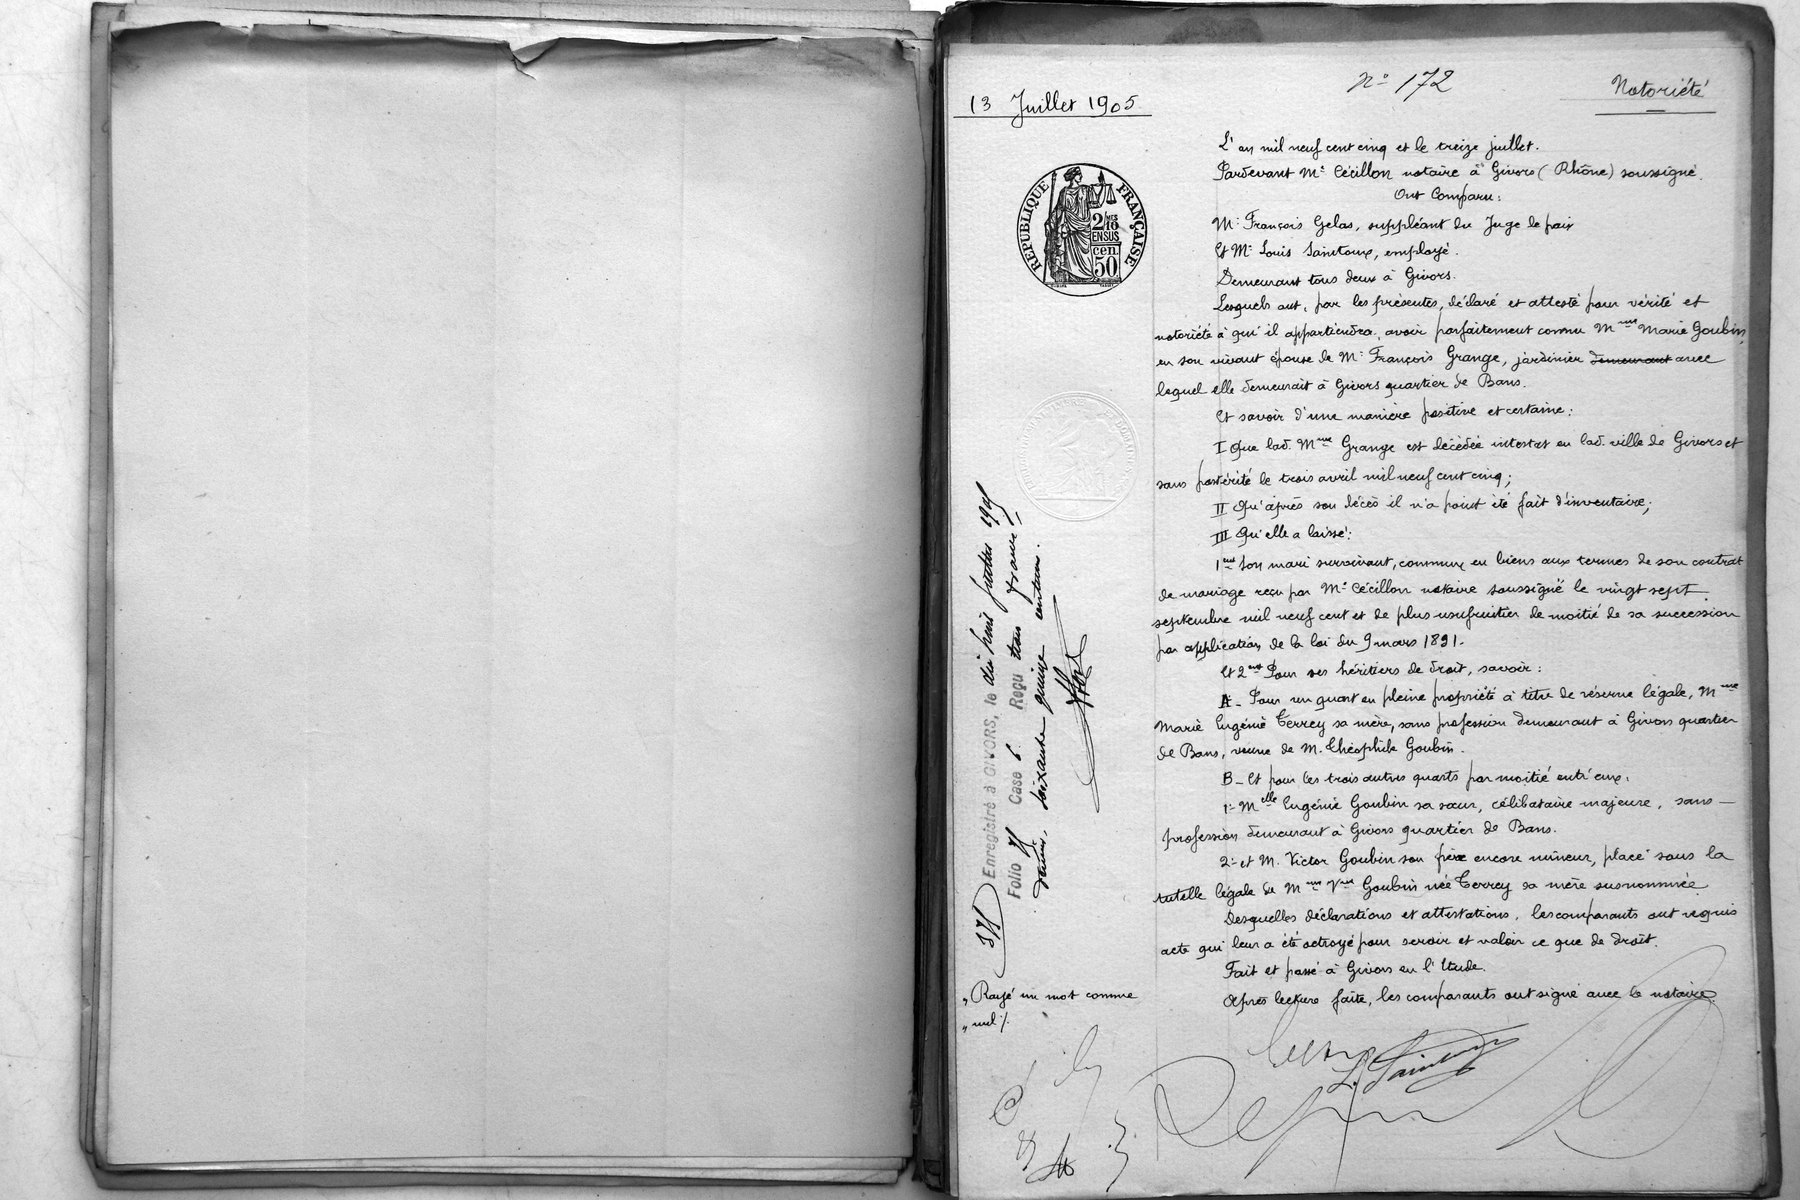 N° 172
Notoriété
13 Juillet 1905
L'an mil neuf cent cinq et le treize juillet.
Pardevant Me Cécillon notaire à Givors (Rhône) soussigné.
Ont Comparu:
Mr François Gelas, suppléant du Juge de paix
Et Mr Louis Saintoux, employé.
Demeurant tous deux à Givors.
Lesquels ont, par les présentes, déclaré et attesté pour vérité et
notoriété à qui il appartiendra, avoir parfaitement connu Mme Marie Goubin,
en son vivant épouse de Mr François Grange, jardinier demeurant avec
lequel elle demeurait à Givors quartier de Bans.
Et savoir d'une manière positive et certaine:
I Que lad. Mme Grange est décédée intestat en lad. ville de Givors et
sans postérité le trois avril mil neuf cent cinq;
II Qu'après son décès il n'a point été fait d'inventaire;
III Qu'elle a laissé:
1ent Son mari survivant, commun en biens aux termes de son contrat
de mariage reçu par Me Cécillon notaire soussigné le vingt sept
septembre mil neuf cent et de plus usufruitier de moitié de sa succession
par application de la loi du 9 mars 1891.
Et 2ent Pour ses héritiers de droit, savoir:
A_ Pour un quart en pleine propriété à titre de réserve légale, Mme
Marie Eugénie Terrey sa mère, sans profession demeurant à Givors quartier
de Bans, veuve de M. Théophile Goubin.
B_ Et pour les trois autres quarts par moitié entr'eux:
1° Melle Eugénie Goubin sa sœur, célibataire majeure, sans
profession demeurant à Givors quartier de Bans.
2° et M. Victor Goubin son frère encore mineur, placé sous la
tutelle légale de Mme Vve Goubin née Terrey sa mère susnommée.
Desquelles déclarations et attestations, les comparants ont requis
acte qui leur a été octroyé pour servir et valoir ce que de droit.
Fait et passé à Givors en l'Etude.
Après lecture faite, les comparants ont signé avec le notaire.
RÉPUBLIQUE FRANÇAISE
2/10 EN SUS
cen. 50
Enregistré à GIVORS, le dix huit juillet 1905
Folio Case 6 Reçu trois francs
décimes, soixante quinze centimes.
„ Rayé un mot comme
„ nul ./.
L. Saintoux